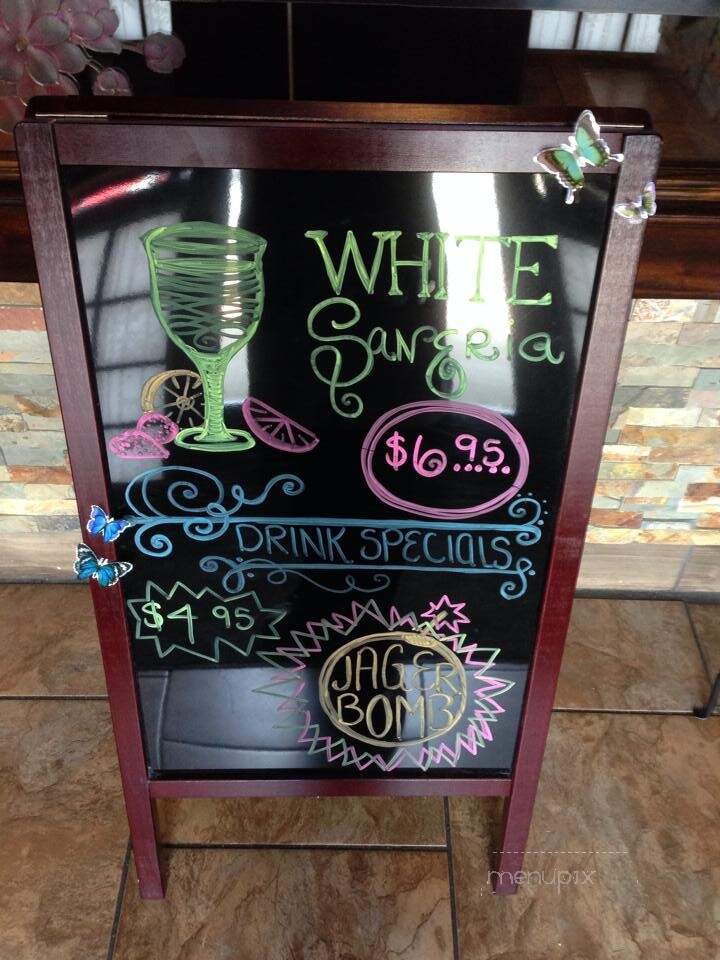 WHITE
SangRia
$6.95
DRINK SPECIALS
$4.95
JAGER
BOMB
menupix